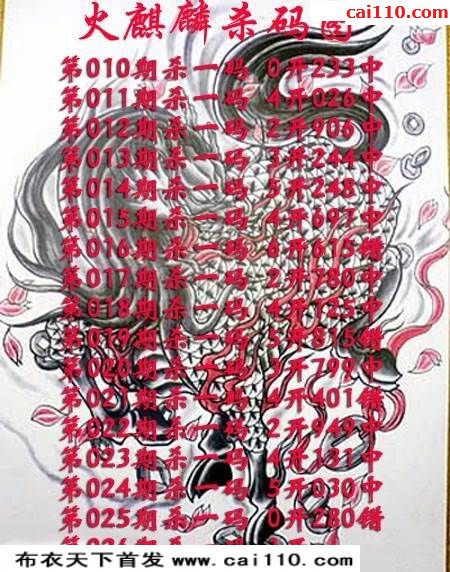 cai110.com
火麒麟杀码
第010期杀一码 0开233中
第011期杀一码 4开026中
第012期杀一码 2开906中
第013期杀一码 3开244中
第014期杀一码 5开248中
第015期杀一码 4开697中
第016期杀一码 6开615错
第017期杀一码 2开780中
第018期杀一码 4开725中
第019期杀一码 5开815错
第020期杀一码 3开799中
第021期杀一码 4开401错
第022期杀一码 2开949中
第023期杀一码 4开131中
第024期杀一码 5开030中
第025期杀一码 0开280错
布衣天下首发 www.cai110.com